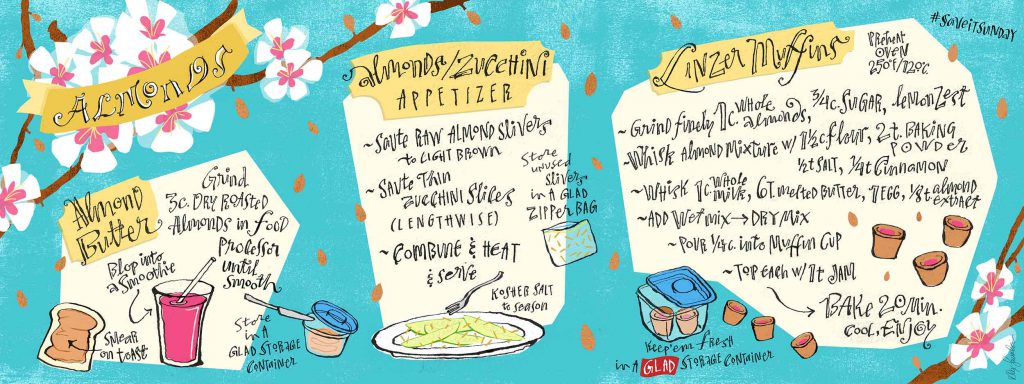 #SAVEITSUNDAY
ALMONDS
Almond
Butter
Grind
3c. DRY ROASTED
Almonds in food
Processor
until
smooth
Blop into
a smoothie
Smear
on toast
Store
in a
GLAD STORAGE
CONTAINER
Almonds/Zucchini
APPETIZER
~ Saute RAW ALMOND Slivers
to LIGHT BROWN
~ Saute Thin
Zucchini Slices
(LENGTHWISE)
~ Combine & HEAT
& serve
Store
unused
slivers
in a GLAD
ZIPPER BAG
KOSHER SALT
to season
Linzer Muffins
PREHEAT
OVEN
250°F/120°C.
~ Grind finely 1 C. Whole almonds, 3/4 c. SUGAR, lemon zest
~ Whisk Almond Mixture w/ 1 1/2 c flour, 2 t. BAKING POWDER
1/2 t SALT, 1/4 t Cinnamon
~ Whisk 1 C. Whole milk, 6 T. melted BUTTER, 1 EGG, 1/8 t almond extract
~ ADD Wet mix → DRY MIX
~ POUR 1/4 c. into Muffin CUP
~ TOP EACH w/ 1 t JAM
BAKE 20 min.
COOL, ENJOY
Keep 'em fresh
in A GLAD STORAGE CONTAINER